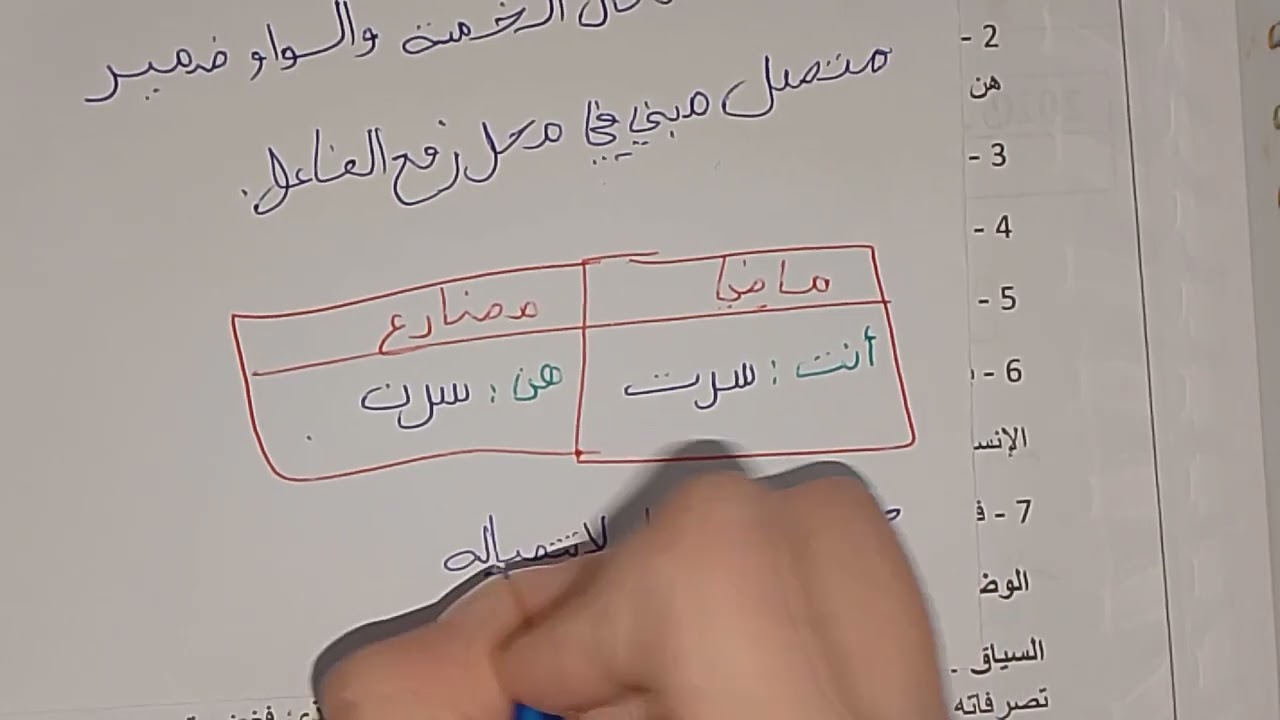 الخمسة والواو ضمير
متصل مبني في محل رفع الفاعل.
ماضي
مضارع
أنت : سرت
هن : سرن
لاتصاله
2 -
هن
3 -
4 -
5 -
6 -
الإنس
7 - ف
الوض
السياق .
تصرفاته